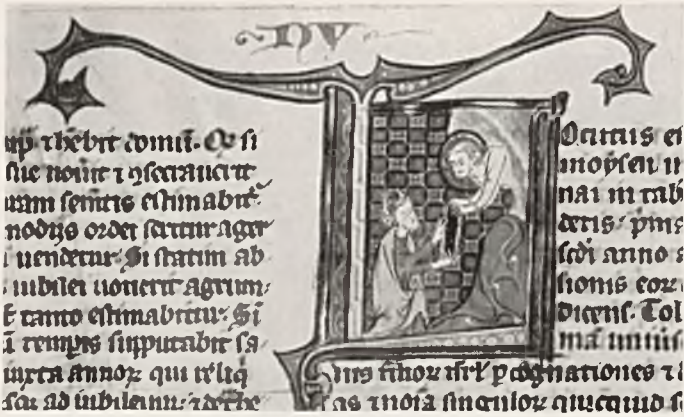 NV
sup̄ ⁊ hēbit domū. Qd̄ si
sue vouit ⁊ ꝯsecrauerit
uram sementis estimabit᷑
modiis ordei seritur ager
uendetur. Si statim ab
iubilei uouerit agrum.
tanto estimabitur. Si
temp̄is supputabit sa
iuxta annoꝝ qui reliq̄
ad iubileum. ⁊ dethe
Ocutus es
moysen in
nai in tab
deris. pm̄a
scd̄i anno a
sionis eoꝝ
dicens. Tol
mā uniuıs
onis filioꝝ isrl̄ ꝑ cognationes ⁊ d
as ⁊ noīa singuloꝝ quicquid s